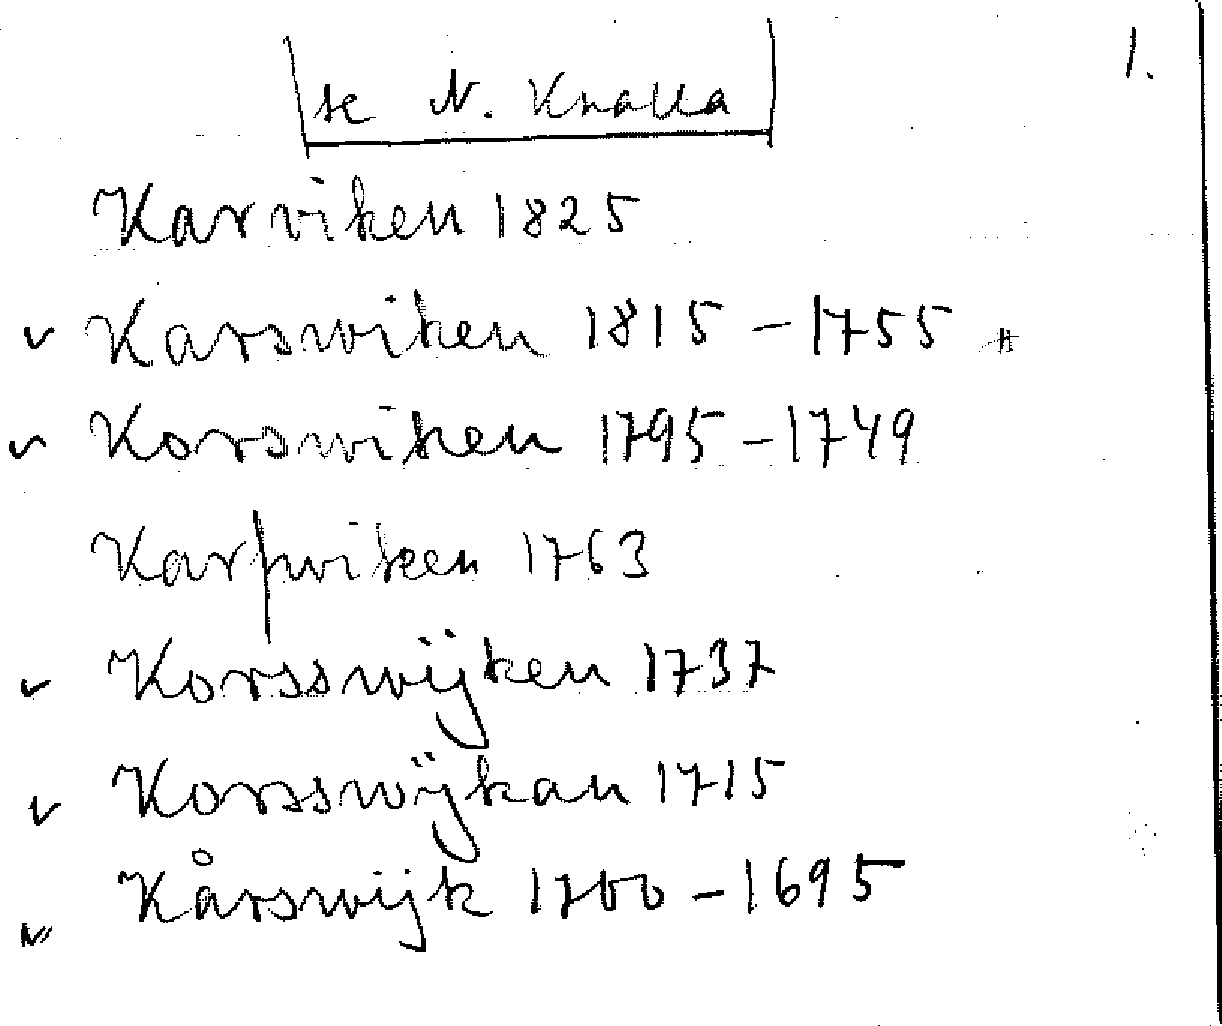 1.
se N. Knalla
Karviken 1825
v Karswiken 1815 – 1755 *
v Korswiken 1795 – 1749
Karpviken 1763
v Korsswijken 1737
v Korsswijkan 1715
v Kårswijk 1700 – 1695